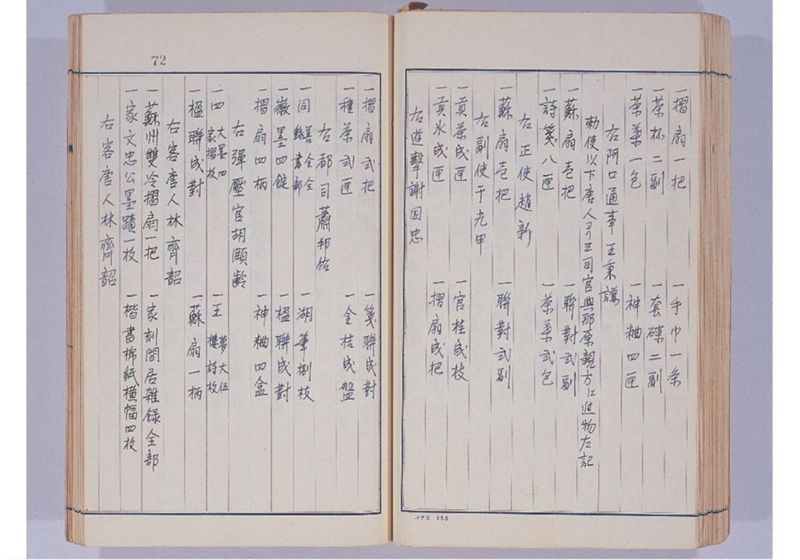 一摺扇一把 一手巾一条
一茶杯二副 一套碟二副
一茶葉一包 一神粬四匣
右阿口通事王秉謙
勅使以下唐人ゟ三司官與那原親方江進物左記
一蘇扇壱把 一聯對弐副
一詩箋八匣 一茶葉弐包
右正使趙新
一蘇扇壱把 一聯對弐副
右副使于光甲
一貢茶成匣 一官桂成枝
一貢氷成匣 一摺扇成把
右遊擊謝国忠
72
一摺扇弐把 一箋聯成對
一種茶弐匣 一全桂成盤
右都司蕭邦佑
一同 全部 一湖筆捌枝
一徽墨四錠 一楹聯成對
一摺扇四柄 一神粬四盒
右彈壓官胡頤齡
一四大墨四枚 一王夢樓大伍詩枚
一楹聯成對 一蘇扇一柄
右客唐人林齊韶
一蘇州雙冷摺扇一把 一家刻間居雜錄全部
一家文忠公墨蹟一枚 一楷書棉紙橫幅四枚
右客唐人林齊韶